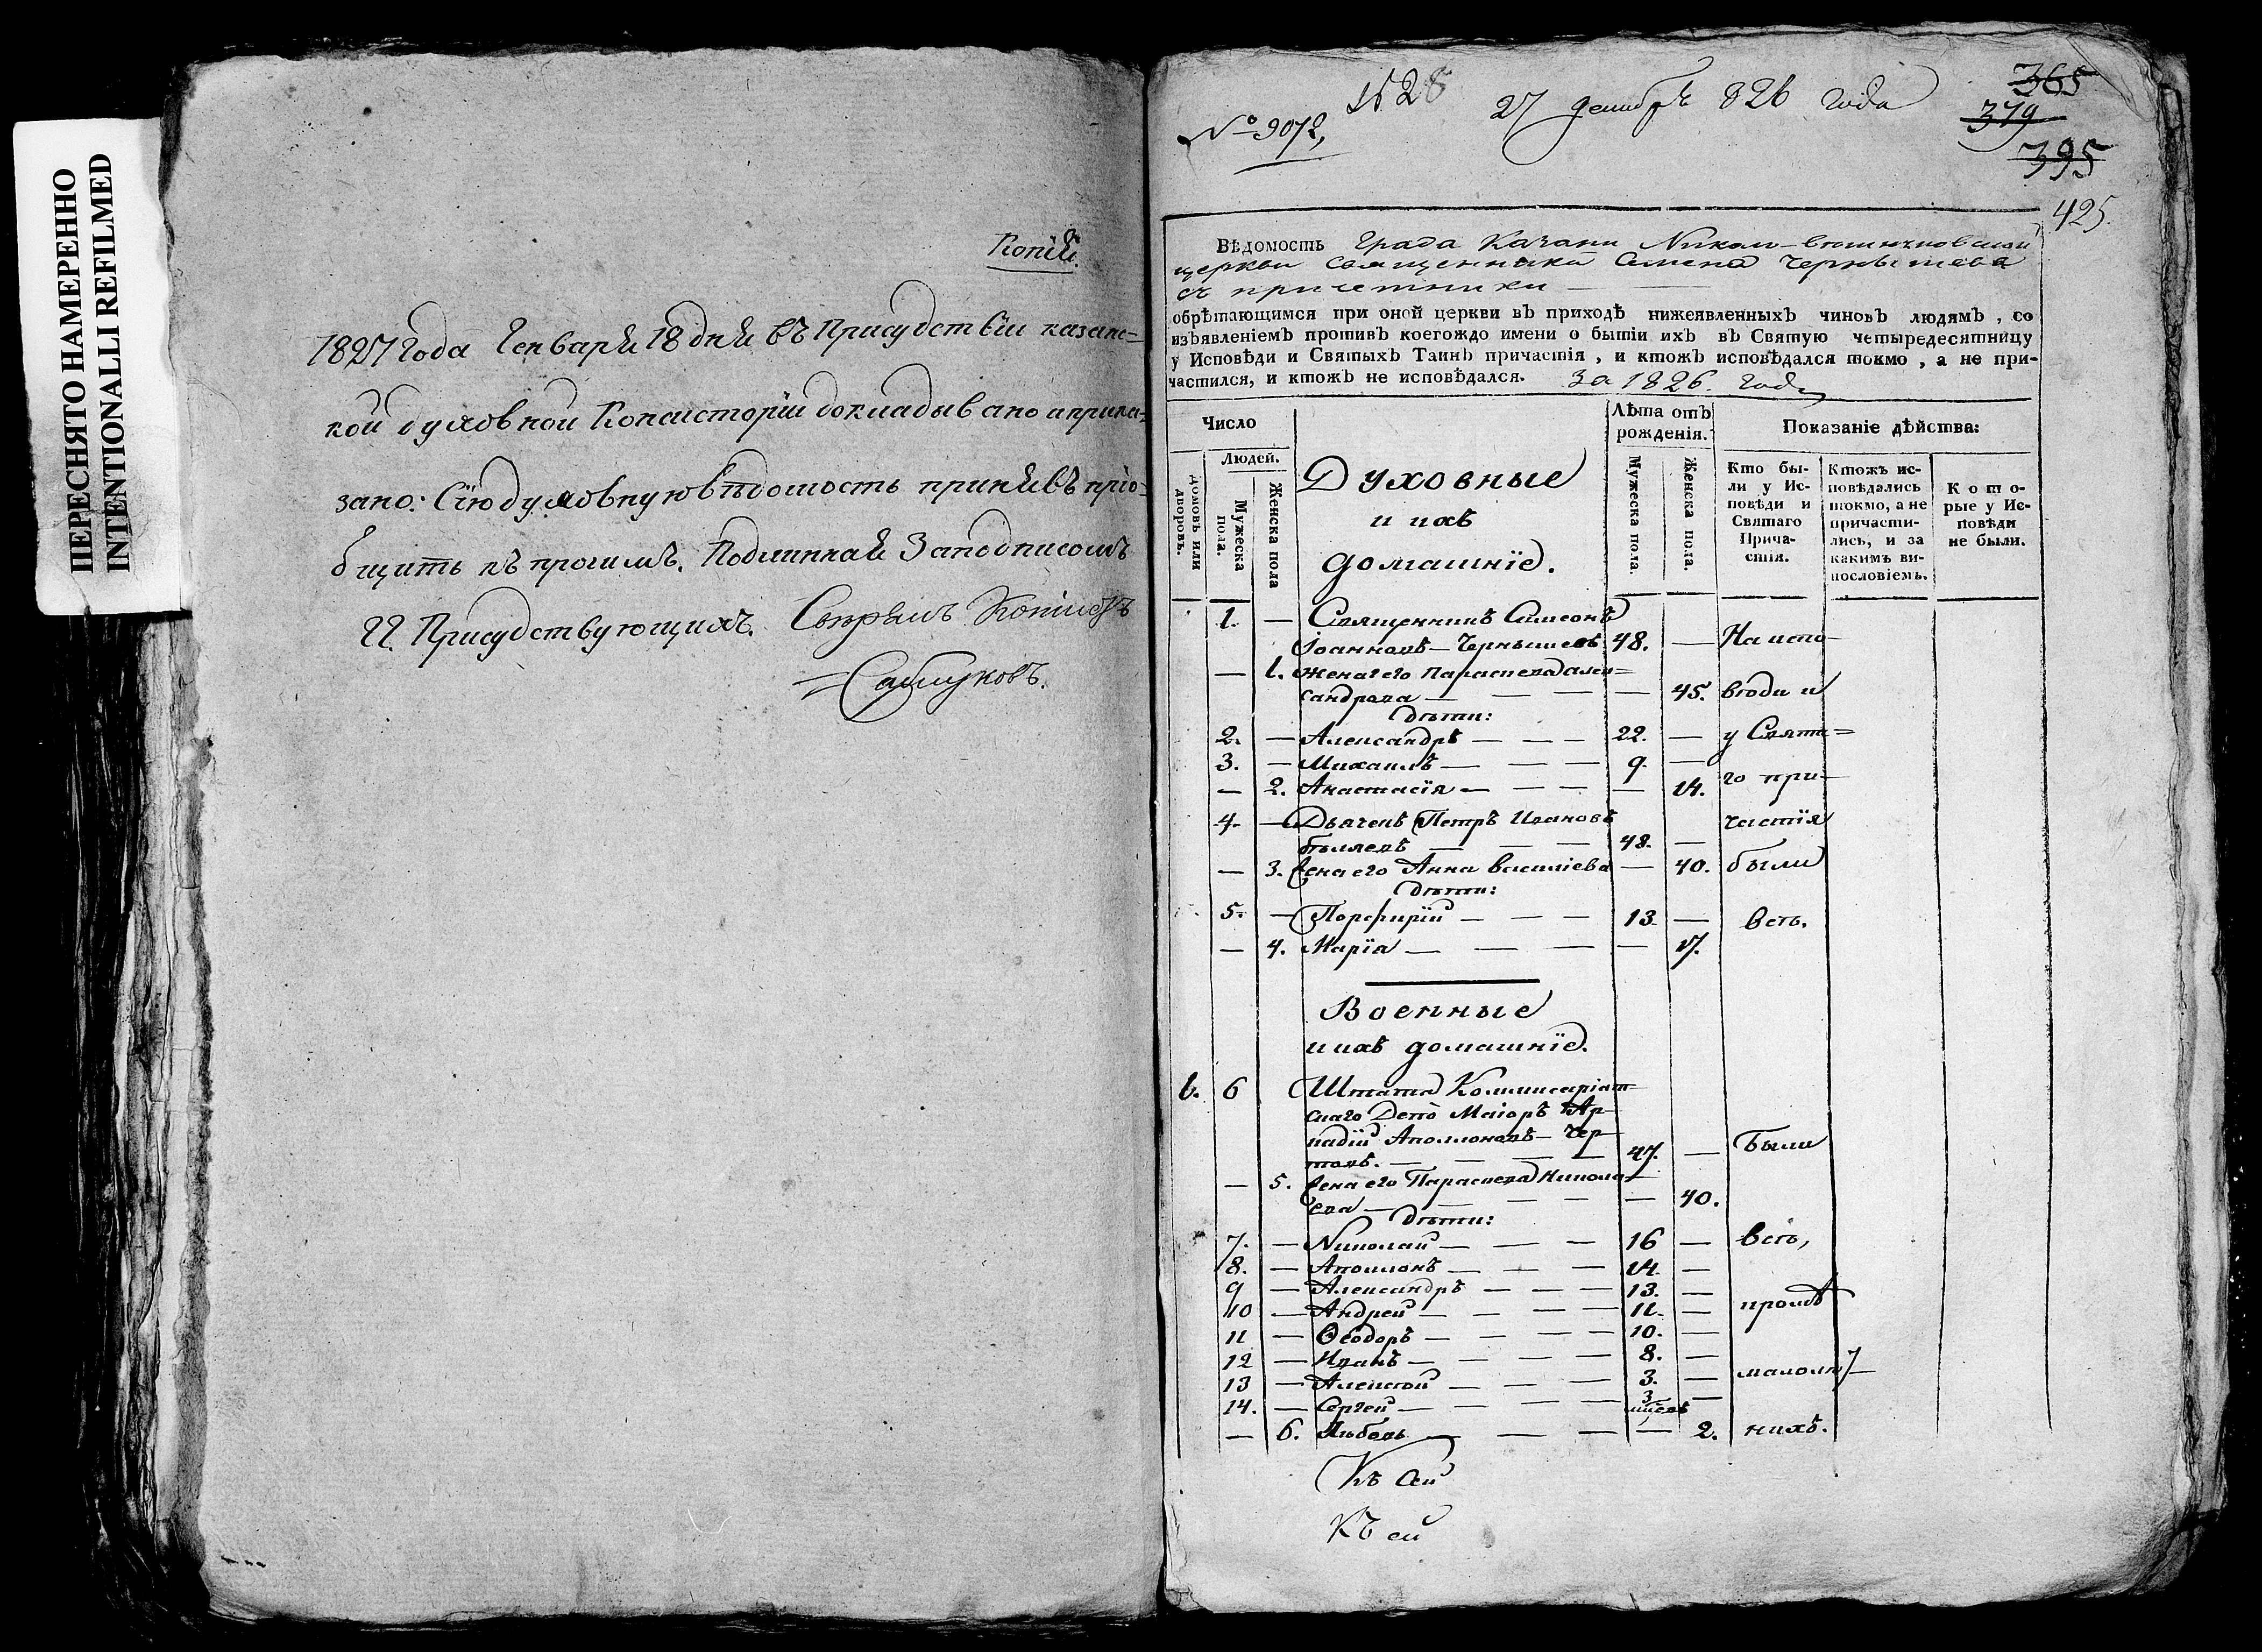 ПЕРЕСНЯТО НАМЕРЕННО
INTENTIONALLI REFILMED
Копія.
1827 года Генваря 18 дня въ Присудствіи казанс-
кой духовной Консисторіи докладывано и прика-
зано: Сію духовную вѣдомость принявъ пріо-
бщить къ прочимъ. Подлинная За подписомъ
ГГ. Присудствующихъ.
№ 9072,
27 декабря 826 года
365
379
395
425.
Вѣдомость Града Казани
церкви священника Семена Чернышева
съ причетники
обрѣтающимся при оной церкви въ приходѣ нижеявленныхъ чиновъ людямъ, со
изъявленіемъ противъ коегождо имени о бытіи ихъ въ Святую четыредесятницу
у Исповѣди и Святыхъ Таинъ причастія, и ктожъ исповѣдался токмо, а не при-
частился, и ктожъ не исповѣдался. За 1826. годъ
Число
Людей.
домовъ или дворовъ.
Мужеска пола.
Женска пола
Духовные
и ихъ
домашніе.
Лѣта отъ
рожденія.
Мужеска пола.
Женска пола.
Показаніе дѣйства:
Кто бы-
ли у Ис-
повѣди и
Святаго
Прича-
стія.
Ктожъ ис-
повѣдались
токмо, а не
причасти-
лись, и за
какимъ ви-
нословіемъ.
Кото-
рые у Ис-
повѣди
не были.
1. — Священникъ Симеонъ
Іоанновъ — Чернышевъ 48. — На испо-
— 1. жена его Параскева Алек=
сандрова — — — — — 45. вѣди и
дѣти:
2. — Александръ — — — 22. — у Свята=
3. — Михаилъ — — — 9. —
— 2. Анастасія — — — — 14. го при-
4. — Дьячекъ Петръ Ивановъ частія
48. —
— 3. жена его Анна Василіева — 40. были
дѣти:
5. — Порфирій — — — 13 — всѣ.
— 4. Марія — — — — 17.
Военные
и ихъ домашніе.
1. 6 Штата Коммисаріат-
скаго Депо Маіоръ Ар-
кадій Аполлоновъ — Чер-
товъ. — — — — 47. — Были
— 5. жена его Параскева Никола-
ева — — — — — 40.
дѣти:
7. — Николай — — — 16 — всѣ,
8. — Аполлонъ — — — 14. —
9 — Александръ — — — 13. —
10 — Андрей — — — 11. — кромѣ
11 — Ѳеодоръ — — — 10. —
12 — Иванъ — — — 8. —
13 — Алексей — — — 3. — малолѣт-
14. — Сергей — — — 3 мѣсяц —
— 6. Любовь — — — — 2. нихъ.
Къ сей
Къ сей